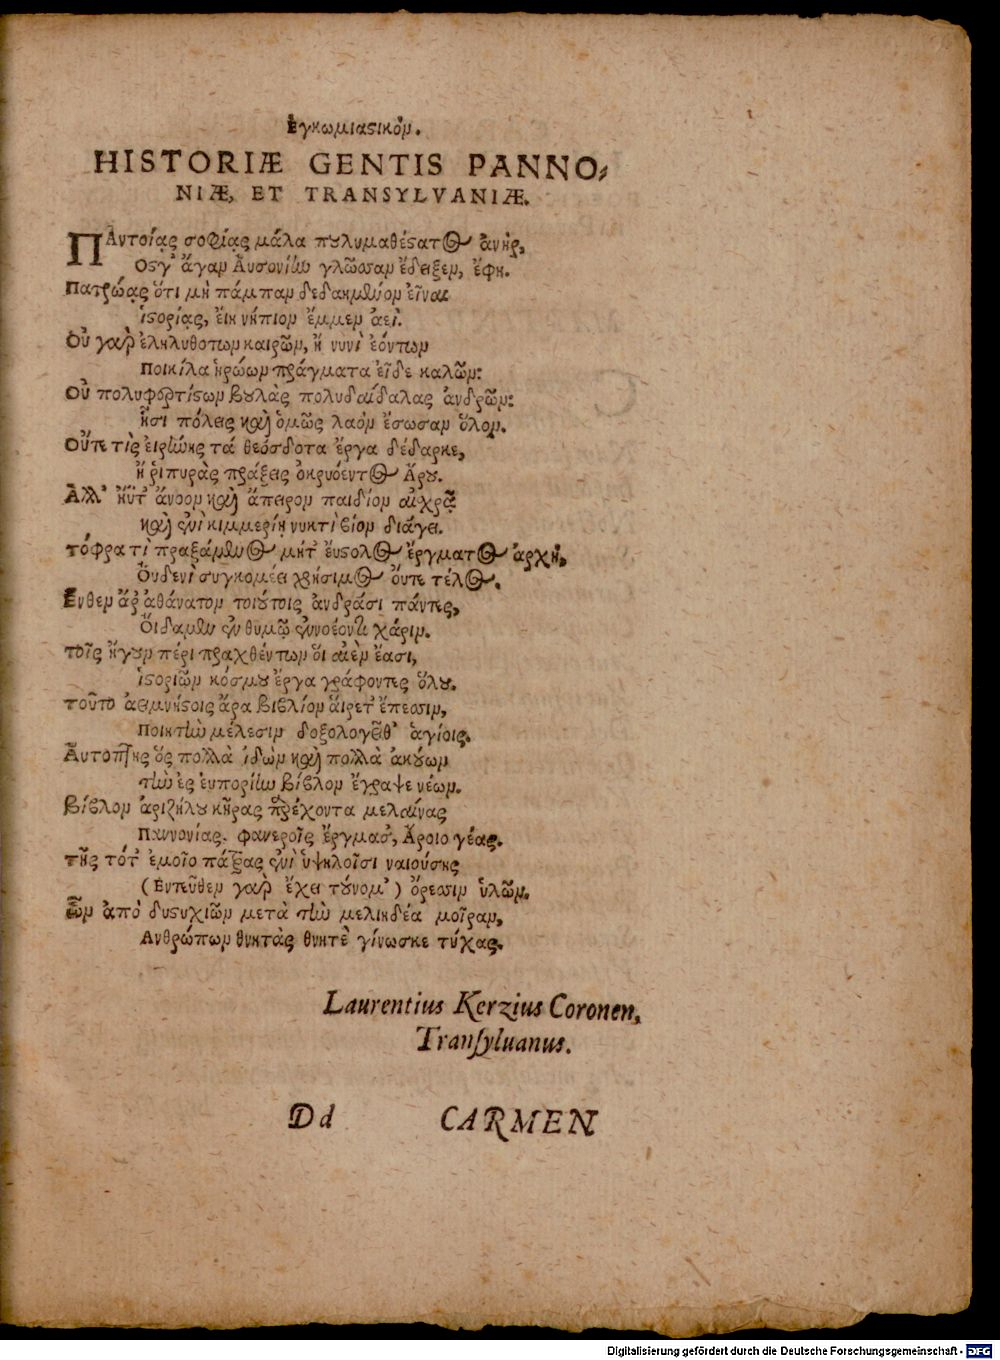 Ἐγκωμιαστικὸν.
HISTORIÆ GENTIS PANNO-
NIÆ, ET TRANSYLVANIÆ.
ΠΑντοίας σοφίας μάλα πουλυμαθέστατος ἀνήρ,
Ὅς γ' ἄγαν Αὐσονίην γλῶσσαν ἔδειξεν, ἔφη.
Πατρώας ὅτι μὴ πάμπαν δεδαημένον εἶναι
ἱστορίας, ἔικ νήπιον ἔμμεν ἀεί.
Οὐ γαρ ἐληλυθότων καιρῶν, ἢ νυνὶ ἐόντων
Ποικίλα ἡρώων πράγματα εἶδε καλῶν:
Οὐ πολυφορτίστων βουλὰς πολυδαίδαλας ἀνδρῶν:
ᾗσι πόλεις καὶ ὁμῶς λαὸν ἔσωσαν ὅλον.
Οὔτε τὶς εἰρήνης τά θεόσδοτα ἔργα δέδαρκε,
Ἢ ῥιπυρὰς πράξεις ὀκρυόεντος Ἄρου.
Ἀλλ' ἠΰτ' ἄνοον καὶ ἄπειρον παιδίον
καὶ ἐνὶ κιμμερίῃ νυκτὶ βίον διάγει.
τόφρα τὶ πραξάμενος μήτ' ἔυστολος ἔργματος ἀρχή,
Οὐδενὶ συγκομέει χρήσιμος οὔτε τέλος.
Ἔνθεν ἄρ' ἀθάνατον τοιούτοις ἀνδράσι πάντες,
Οἴδαμεν ἐν θυμῷ ἐννοέοντι χάριν.
τοῖς ἤγουν πέρι πραχθέντων ὅι αἰὲν ἔασι,
ἱστοριῶν κόσμου ἔργα γράφοντες ὅλου.
τοῦτο ἀειμνήστοις ἄρα βιβλίον αἵρετ' ἔπεσσιν,
Ποιητῶν μέλεσιν δοξολογεῖθ' ἁγίοις.
Ἀυτοπτὴς ὃς πολλὰ ἰδὼν καὶ πολλὰ ἀκούων
τὴν ἐς ἐυπορίην βίβλον ἔγραψε νέων.
Βίβλον ἀριζήλου κῆρας προέχοντα μελαίνας
Παννονίας. φανεροῖς ἔργμασ', Ἄροιο γέας.
τῆς τότ' ἐμοῖο πάτρας ἐνὶ ὑψηλοῖσι ναιούσης
(Ἐντεῦθεν γαρ ἔχει τοὔνομ') ὄρεσσιν ὑλῶν.
Ὧν ἀπὸ δυστυχιῶν μετὰ τὴν μελιηδέα μοῖραν,
Ἀνθρώπων θνητὰς θνητὲ γίνωσκε τύχας.
Laurentius Kerzius Coronen,
Transyluanus.
Dd CARMEN
Digitalisierung gefördert durch die Deutsche Forschungsgemeinschaft - DFG